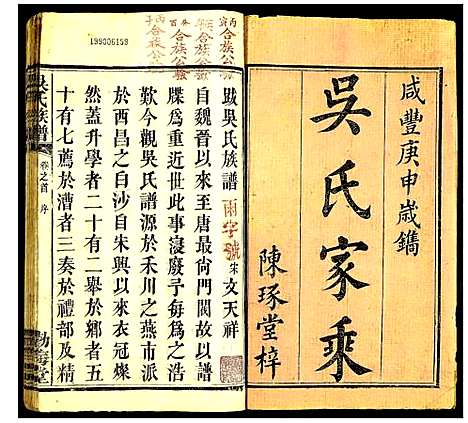 咸豐庚申歲鐫
吳氏家乘
陳琢堂梓
丙寅合族公驗
癸酉合族公驗
199306159
跋吳氏族譜
雨字號
宋文天祥
自魏晉以來至唐最尚門閥故以譜
牒爲重近世此事寖廢予每爲之浩
歎今觀吳氏譜源於禾川之燕市派
於西昌之白沙自朱興以來衣冠燦
然蓋升學者二十有二舉於鄉者五
十有七薦於漕者三奏於禮部及精
吳氏族譜
卷之首
序
渤海堂